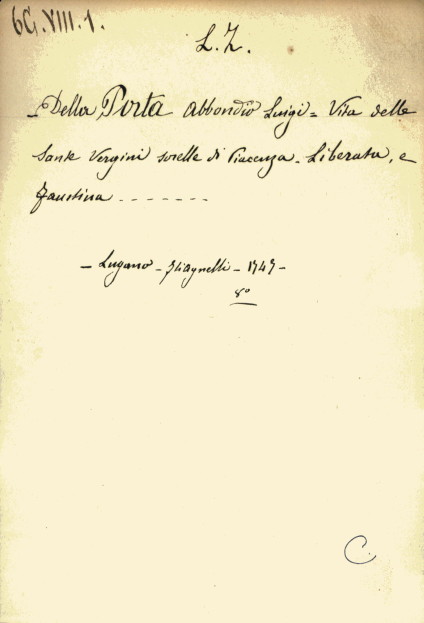 6G.VIII.1.
L.Z.
- Della Porta Abbondio Luigi = Vita delle
Sante Vergini sorelle di Piacenza - Liberata, e
Faustina -------
- Lugano - Agnelli - 1747 -
8°
C.